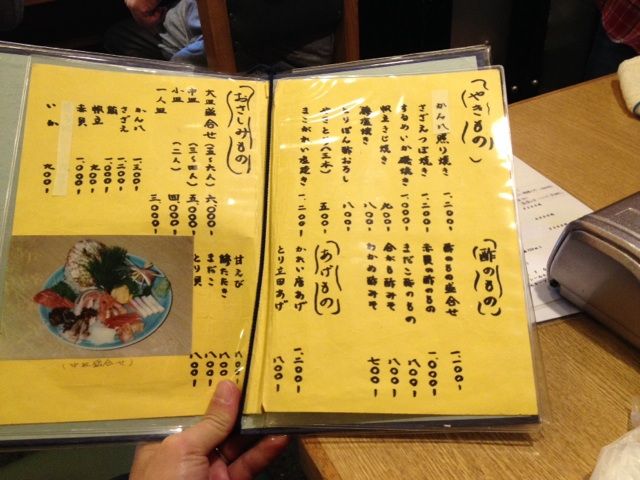 やきもの
かん八照り焼き 一、二〇〇-
さざえつぼ焼き 一、二〇〇-
するめいか磯焼き 一、〇〇〇-
帆立きじ焼き 九〇〇-
塩焼き 八〇〇-
とりぽん酢おろし 八〇〇-
やきとり(三本) 五〇〇-
まこがれい塩焼き 一、二〇〇-
酢のもの
酢のもの盛合せ 一、一〇〇-
赤貝の酢のもの 一、〇〇〇-
まだこ酢のもの 八〇〇-
酢みそ 八〇〇-
わかめ酢みそ 七〇〇-
あげもの
かれい唐あげ 一、二〇〇-
とり立田あげ 八〇〇-
おさしみもの
大皿盛合せ(五〜六人) 六、〇〇〇-
中皿(三〜四人) 五、〇〇〇-
小皿(二人) 四、〇〇〇-
一人皿 三、〇〇〇-
かん八 一、三〇〇-
さざえ 一、二〇〇-
一、〇〇〇-
帆立 九〇〇-
赤貝 一、〇〇〇-
いか 九〇〇-
甘えび 八〇〇-
たたき 八〇〇-
まだこ 八〇〇-
とり貝 八〇〇-
(中皿盛合せ)